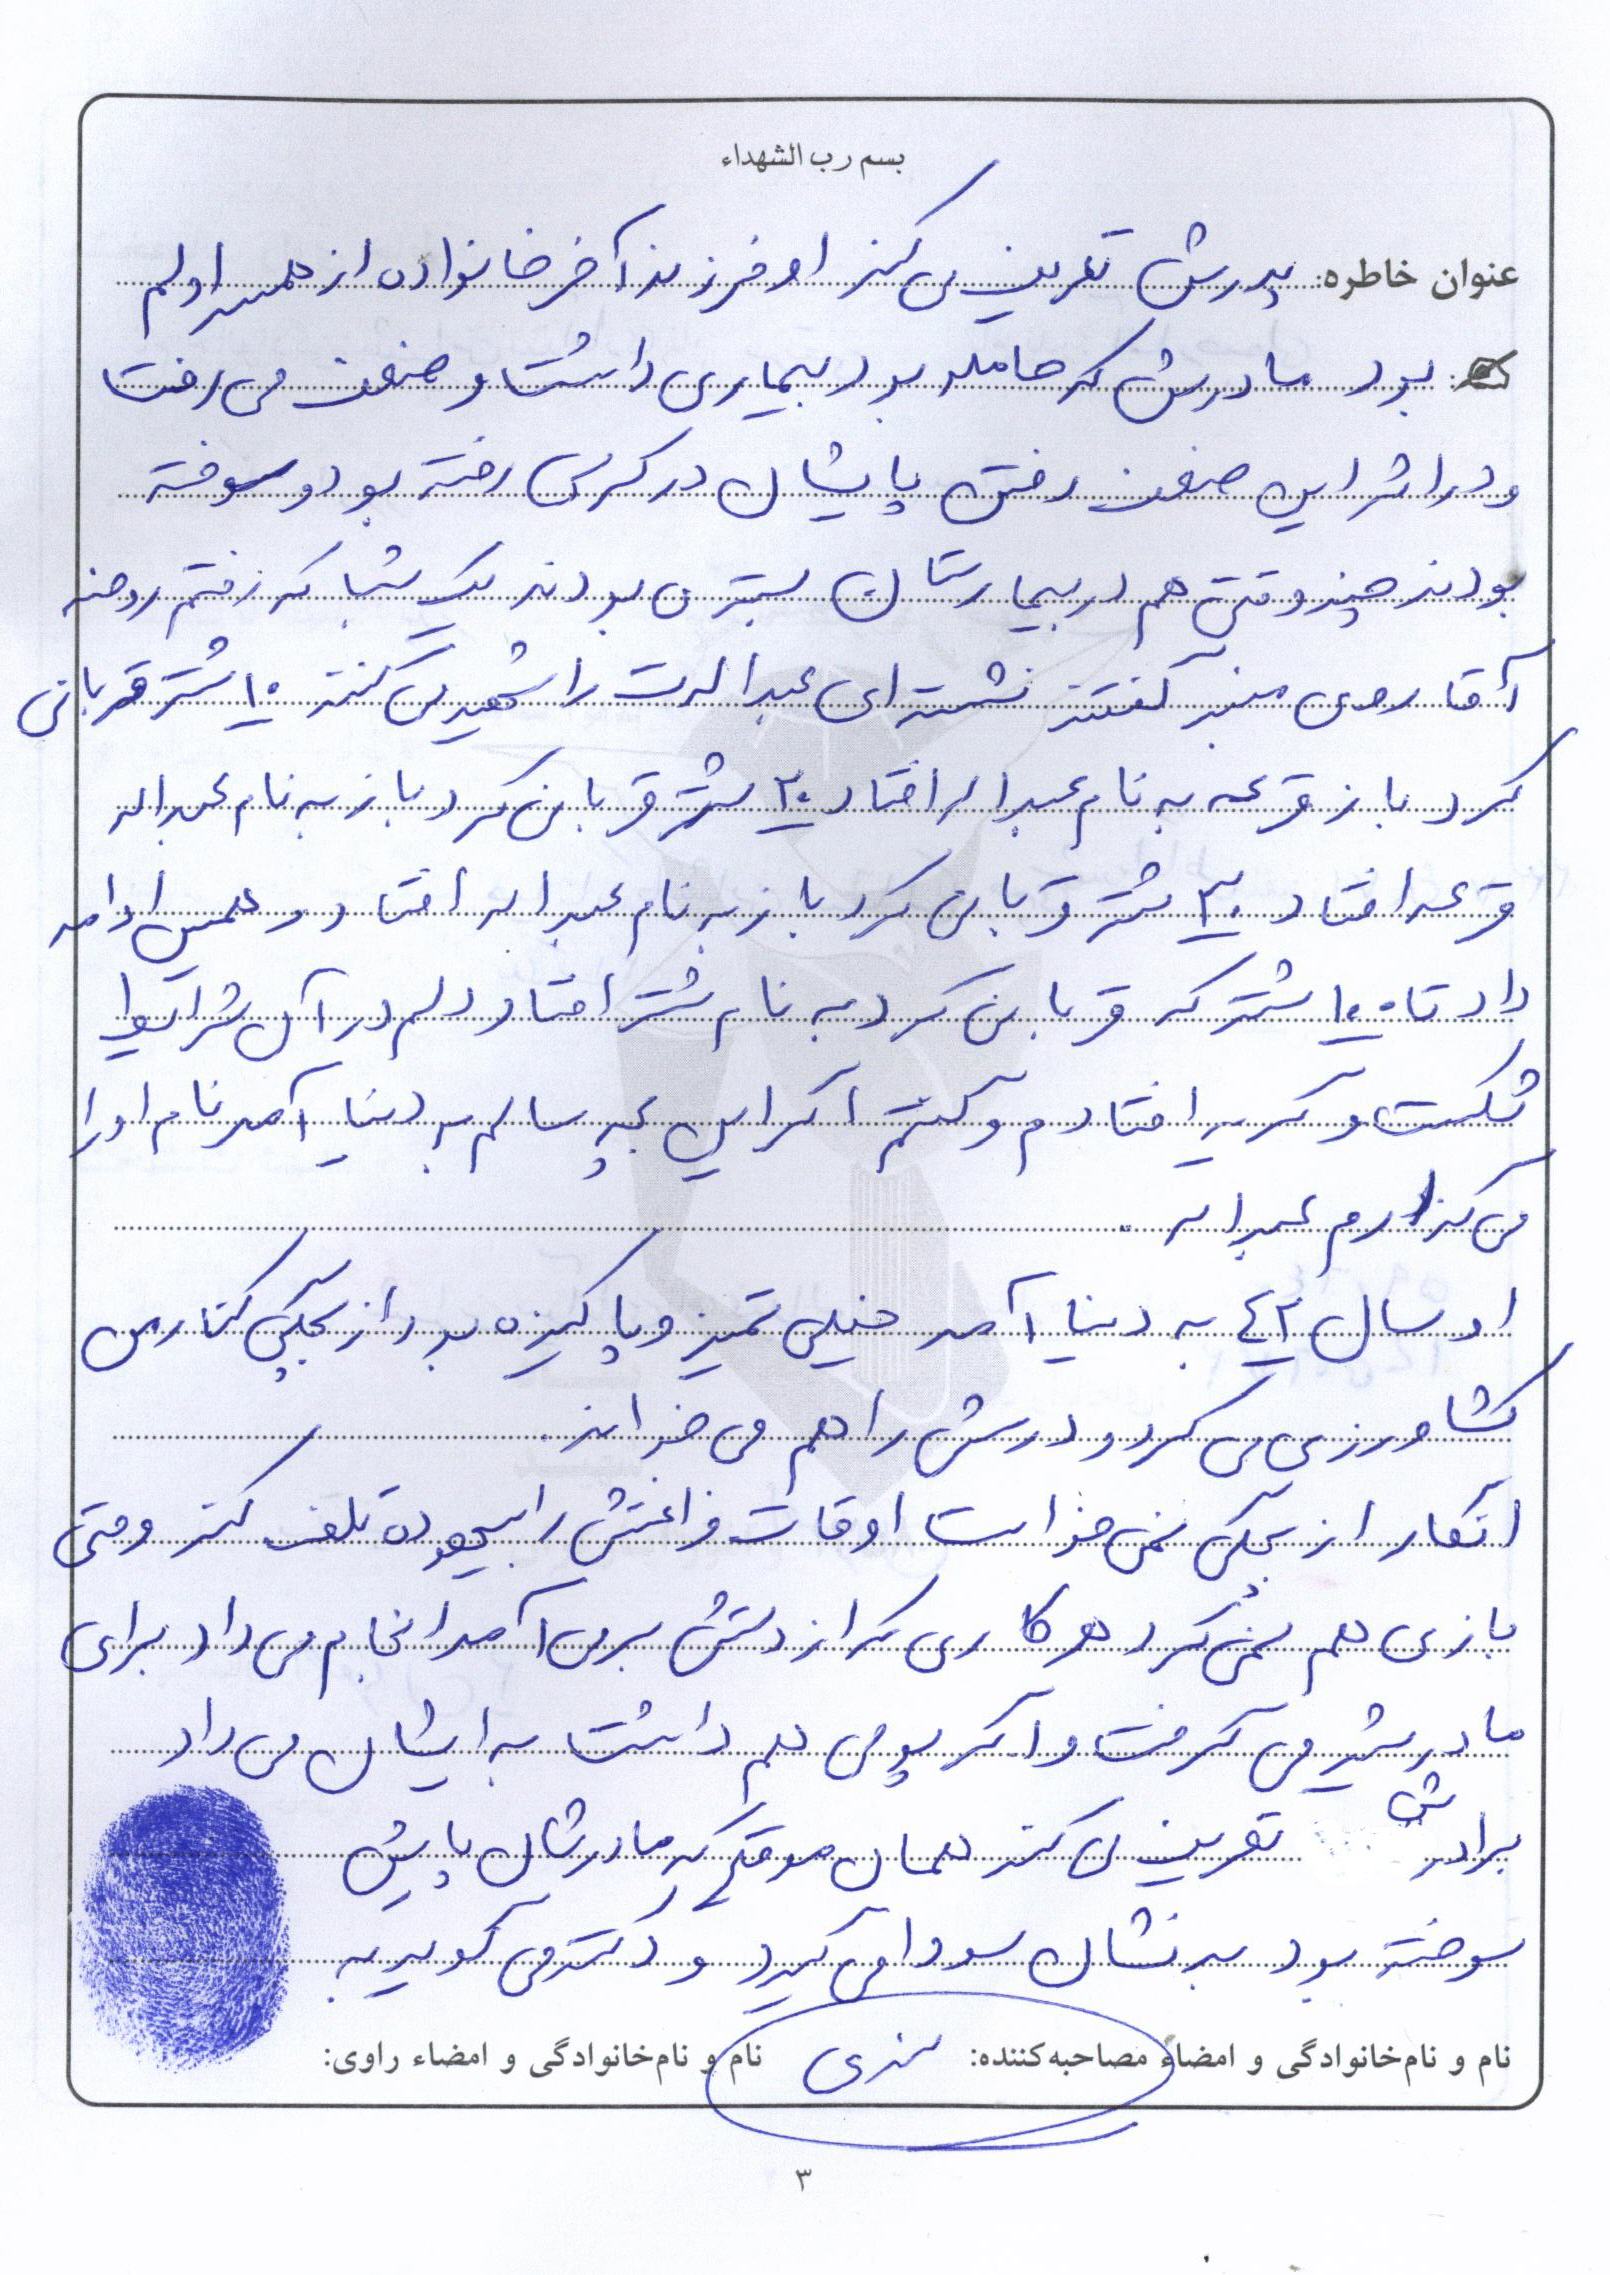 بسم رب الشهداء
عنوان خاطره: پدرش تعریف می کند او فرزند آخر خانواده از همسر اولم
بود مادرش که حامله بود بیماری داشت و ضعف می رفت
و در اثر این ضعف رفتن پایشان در کرسی رفته بود و سوخته
بودند چند وقتی هم در بیمارستان بستری بودند یک شب که رفتم روضه
آقا روی منبر گفتند را شهید می کنند ۱۰ شتر قربانی
کرد باز قرعه به نام عبداله افتاد ۲۰ شتر قربانی کرد باز به نام عبداله
قرعه افتاد ۳۰ شتر قربانی کرد باز به نام عبداله افتاد و همین ادامه
داد تا ۱۰۰ شتر که قربانی کرد به نام شتر افتاد دلم در آن شرایط
شکست و گریه افتادم و گفتم اگر این بچه سالم به دنیا آمد نام او را
می گذارم عبداله .
او سال ۴۲ به دنیا آمد خیلی تمیز و پاکیزه بود از بچگی کنار من
کشاورزی می کرد و درسش را هم می خواند .
انگار از بچگی نمی خواست اوقات فراغتش را بیهوده تلف کند وقتی
بازی هم نمی کرد هر کاری که از دستش بر می آمد انجام می داد برای
مادر شیر می گرفت و اگر پولی هم داشت به ایشان می داد
برادرش تعریف می کند همان موقعی که مادرشان پایش
سوخته بود بدنشان سودا می گیرد و دکتر می گوید به
نام و نام‌خانوادگی و امضاء مصاحبه‌کننده: نام و نام‌خانوادگی و امضاء راوی:
۳